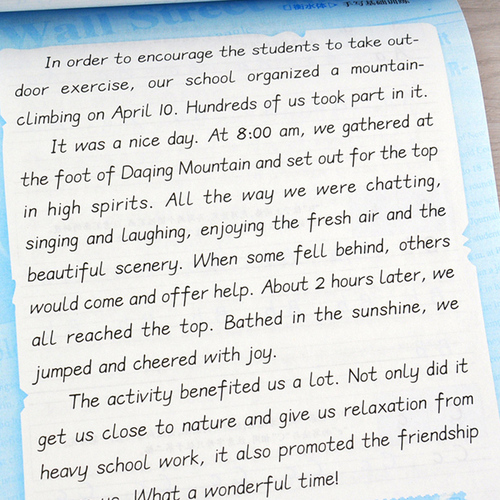 Wall Street
In order to encourage the students to take out-
door exercise, our school organized a mountain-
climbing on April 10. Hundreds of us took part in it.
It was a nice day. At 8:00 am, we gathered at
the foot of Daqing Mountain and set out for the top
in high spirits. All the way we were chatting,
singing and laughing, enjoying the fresh air and the
beautiful scenery. When some fell behind, others
would come and offer help. About 2 hours later, we
all reached the top. Bathed in the sunshine, we
jumped and cheered with joy.
The activity benefited us a lot. Not only did it
get us close to nature and give us relaxation from
heavy school work, it also promoted the friendship
us. What a wonderful time!